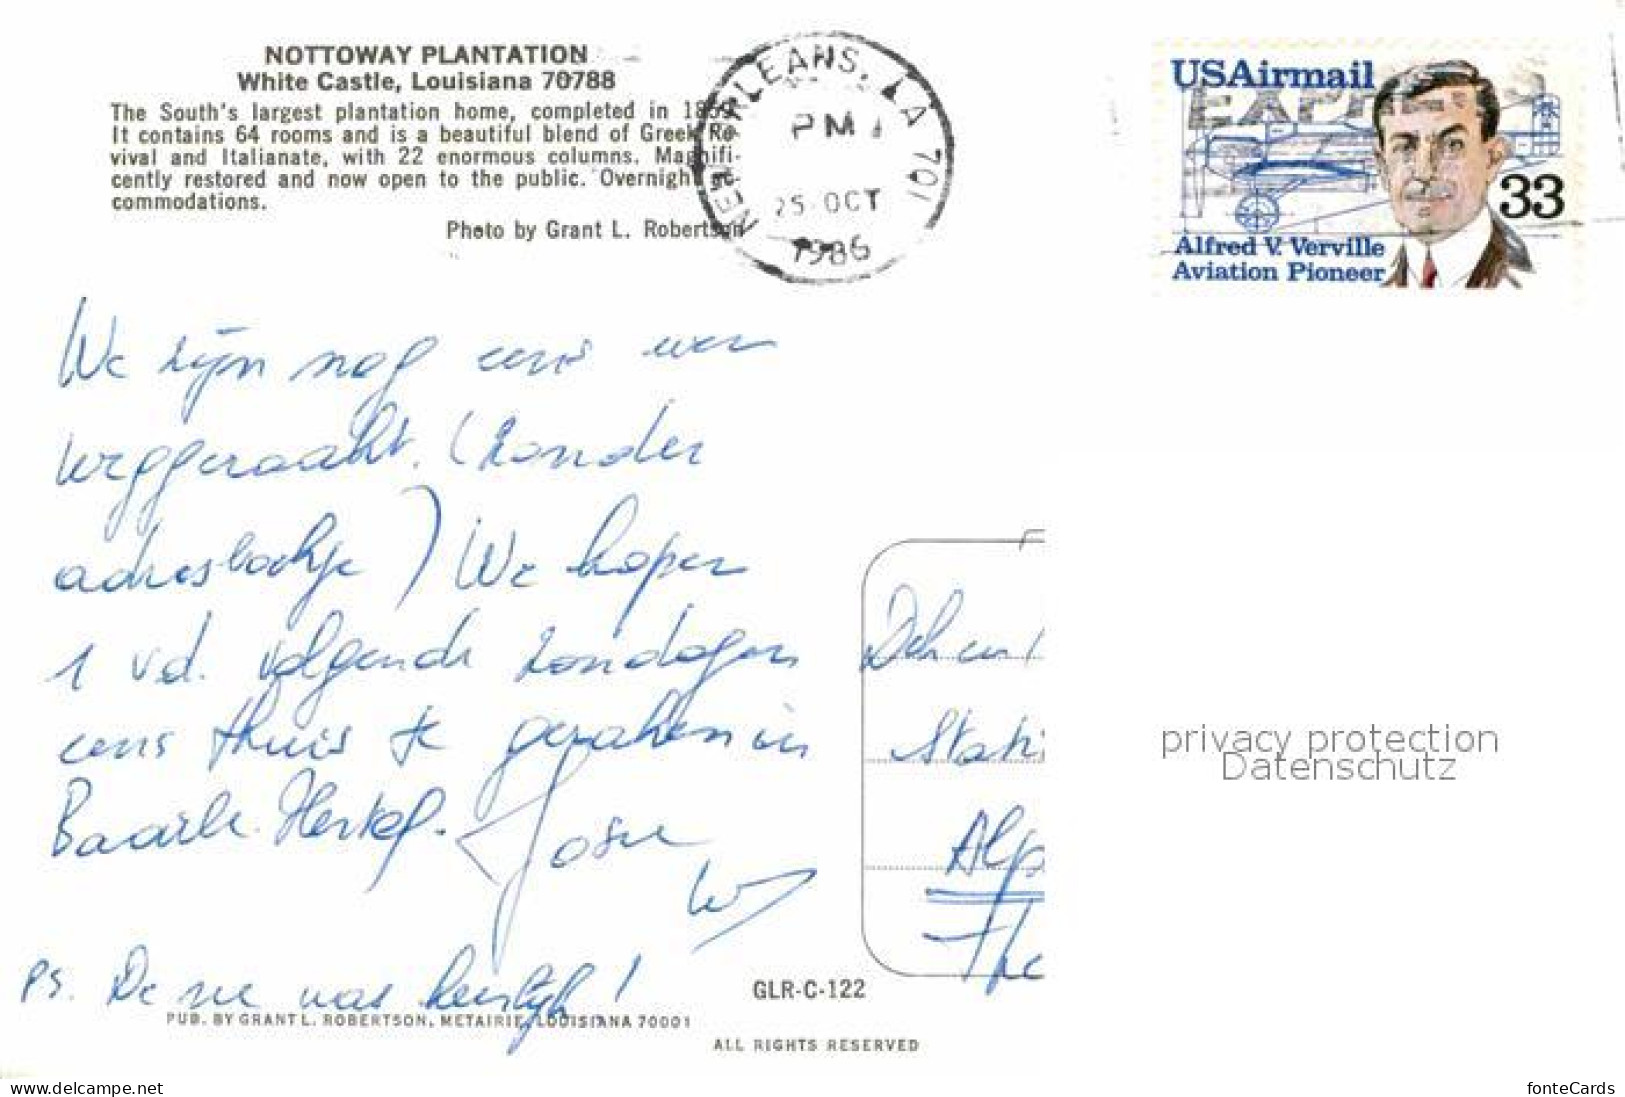 NOTTOWAY PLANTATION
White Castle, Louisiana 70788
The South's largest plantation home, completed in 1859.
It contains 64 rooms and is a beautiful blend of Greek Re-
vival and Italianate, with 22 enormous columns. Magnifi-
cently restored and now open to the public. Overnight ac-
commodations.
Photo by Grant L. Robertson
NEW ORLEANS, LA 701
PM
25 OCT
1986
USAirmail
33
Alfred V. Verville
Aviation Pioneer
We zijn nog eens weer
weggeraakt. (zonder
adresboekje) We hopen
1 v.d. volgende zondagen
eens thuis te geraken in
Baarle-Hertog.
PS. De zee was heerlijk!
Stati
Alp
privacy protection
Datenschutz
GLR-C-122
PUB. BY GRANT L. ROBERTSON, METAIRIE, LOUISIANA 70001
ALL RIGHTS RESERVED
www.delcampe.net
fonteCards